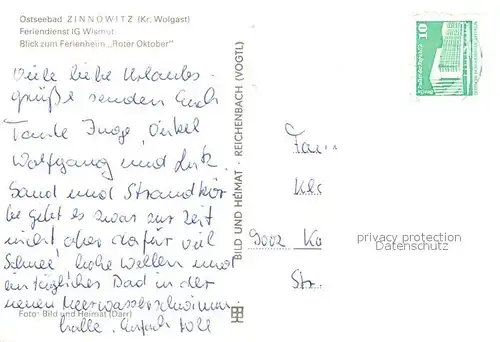 Ostseebad ZINNOWITZ (Kr. Wolgast)
Feriendienst IG Wismut
Blick zum Ferienheim „Roter Oktober"
Viele liebe Urlaubs-
grüße senden Euch
Tante Inge, Onkel
Wolfgang und Lutz.
Sand und Strandkör
be gebt es zwar zur Zeit
nicht aber dafür viel
Schnee, hohe Wellen und
ein tägliches Bad in der
neuen Meerwasserschwimm-
halle. Einfach toll
Foto: Bild und Heimat (Darr)
BILD UND HEIMAT · REICHENBACH (VOGTL)
10
Fam
9002 Ka
Str.
privacy protection
Datenschutz